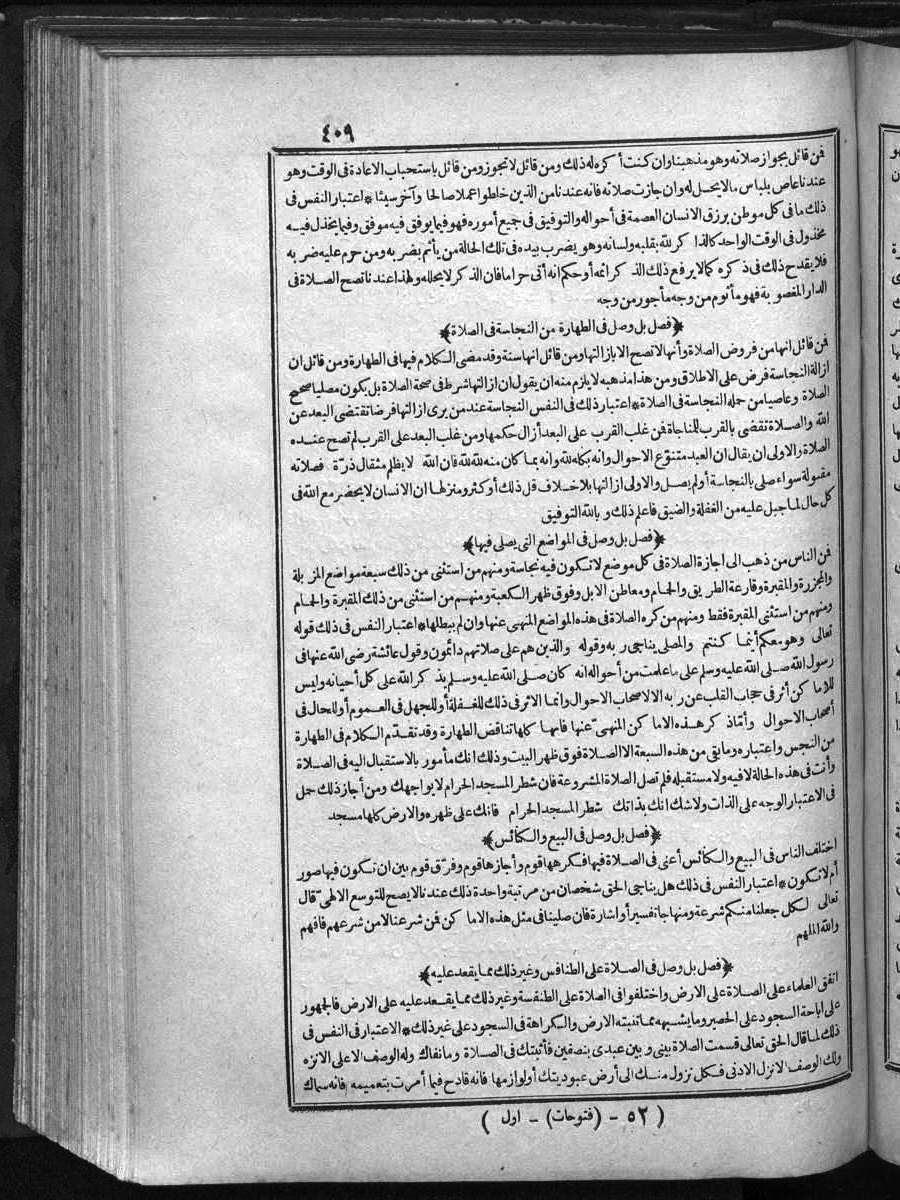 ٤٠٩
فن قائل بجواز صلاته وهو مذهبنا وان كنت أكره له ذلك ومن قائل لا تجوز ومن قائل باستحباب الاعادة فى الوقت وهو
عندنا عاص بلباس مالا يحل له وان جازت صلاته فانه عندنا من الذين خلطوا عملا صالحا وآخر سيئا * اعتبار النفس فى
ذلك ما فى كل موطن يرزق الانسان العصمة فى أحواله والتوفيق فى جميع أموره فهو فيما يوفق فيه موفق وفيما يخذل فيه
مخذول فى الوقت الواحد كالذاكر لله بقلبه ولسانه وهو يضرب بيده فى تلك الحالة من يأثم بضربه ومن حرم عليه ضربه
فلا يقدح ذلك فى ذكره كما لا يرفع ذلك الذكر اثمه أو حكم انه أتى حراما فان الذكر لا يحلله ولهذا عندنا تصح الصلاة فى
الدار المغصوبة فهو مأثوم من وجه مأجور من وجه
﴿فصل بل وصل فى الطهارة من النجاسة فى الصلاة﴾
فن قائل انها من فروض الصلاة وأنها لا تصح الا بازالتها ومن قائل انها سنة وقد مضى الكلام فيها فى الطهارة ومن قائل ان
ازالة النجاسة فرض على الاطلاق ومن هذا مذهبه لا يلزم منه ان يقول ان ازالتها شرط فى صحة الصلاة بل يكون مصليا صحيح
الصلاة وعاصيا من حمله النجاسة فى الصلاة * اعتبار ذلك فى النفس النجاسة عند من يرى ازالتها فرضا تقتضى البعد عن
الله والصلاة تقضى بالقرب للمناجاة فن غلب القرب على البعد أزال حكمها ومن غلب البعد على القرب لم تصح عنده
الصلاة والاولى ان يقال ان العبد متنوّع الاحوال وانه بكله لله وانه بما كان منه لله لله فان الله لا يظلم مثقال ذرّة فصلاته
مقبولة سواء صلى بالنجاسة أو لم يصل والاولى ازالتها بلا خلاف قل ذلك أو كثر ومنزلها ان الانسان لا يحضر مع الله فى
كل حال لما جبل عليه من الغفلة والضيق فاعلم ذلك و بالله التوفيق
﴿فصل بل وصل فى المواضع التى يصلى فيها﴾
فن الناس من ذهب الى اجازة الصلاة فى كل موضع لا تكون فيه نجاسة ومنهم من استثنى من ذلك سبعة مواضع المزبلة
والمجزرة والمقبرة وقارعة الطريق والحمام ومعاطن الابل وفوق ظهر الكعبة ومنهم من استثنى من ذلك المقبرة والحمام
ومنهم من استثنى المقبرة فقط ومنهم من كره الصلاة فى هذه المواضع المنهى عنها وان لم يبطلها * اعتبار النفس فى ذلك قوله
تعالى وهو معكم أينما كنتم والمصلى يناجى ربه وقوله والذين هم على صلاتهم دائمون وقول عائشة رضى الله عنها فى
رسول الله صلى الله عليه وسلم على ما علمت من أحواله انه كان صلى الله عليه وسلم يذكر الله على كل أحيانه وليس
للاماكن أثر فى حجاب القلب عن ربه الا لاصحاب الاحوال وانما الاثر فى ذلك للغفلة أو للجهل فى العموم أو للحال فى
أصحاب الاحوال وأما ذكر هذه الاماكن المنهىّ عنها فانها كلها تناقض الطهارة وقد تقدّم الكلام فى الطهارة
من النجس واعتباره وما بقى من هذه السبعة الا الصلاة فوق ظهر البيت وذلك انك مأمور بالاستقبال اليه فى الصلاة
وأنت فى هذه الحالة لا فيه ولا مستقبله فلم تصل الصلاة المشروعة فان شطر المسجد الحرام لا يواجهك ومن أجاز ذلك حمل
فى الاعتبار الوجه على الذات ولا شك انك بذاتك شطر المسجد الحرام فانك على ظهره والارض كلها مسجد
﴿فصل بل وصل فى البيع والكنائس﴾
اختلف الناس فى البيع والكنائس أعنى فى الصلاة فيها فكرهها قوم وأجازها قوم وفرّق قوم بين ان تكون فيها صور
أم لا تكون * اعتبار النفس فى ذلك هل يناجى الحق شخصان من مرتبة واحدة ذلك عندنا لا يصح للتوسع الالهىّ قال
تعالى لكل جعلنا منكم شرعة ومنهاجا تفسير أو اشارة فان صلينا فى مثل هذه الاماكن فن شرعنا لا من شرعهم فافهم
والله الملهم
﴿فصل بل وصل فى الصلاة على الطنافس وغير ذلك مما يقعد عليه﴾
اتفق العلماء على الصلاة على الارض واختلفوا فى الصلاة على الطنفسة وغير ذلك مما يقعد عليه على الارض فالجمهور
على اباحة السجود على الحصير وما يشبهه مما تنبته الارض والكراهة فى السجود على غير ذلك * الاعتبار فى النفس فى
ذلك لما قال الحق تعالى قسمت الصلاة بينى وبين عبدى بنصفين فأثبتك فى الصلاة وما نفاك وله الوصف الاعلى الانزه
ولك الوصف الانزل الادنى فكل نزول منك الى أرض عبوديتك أو لوازمها فانه قادح فيما أمرت بتعميمه فانه سماك
( ٥٢ - (فتوحات) - اول )